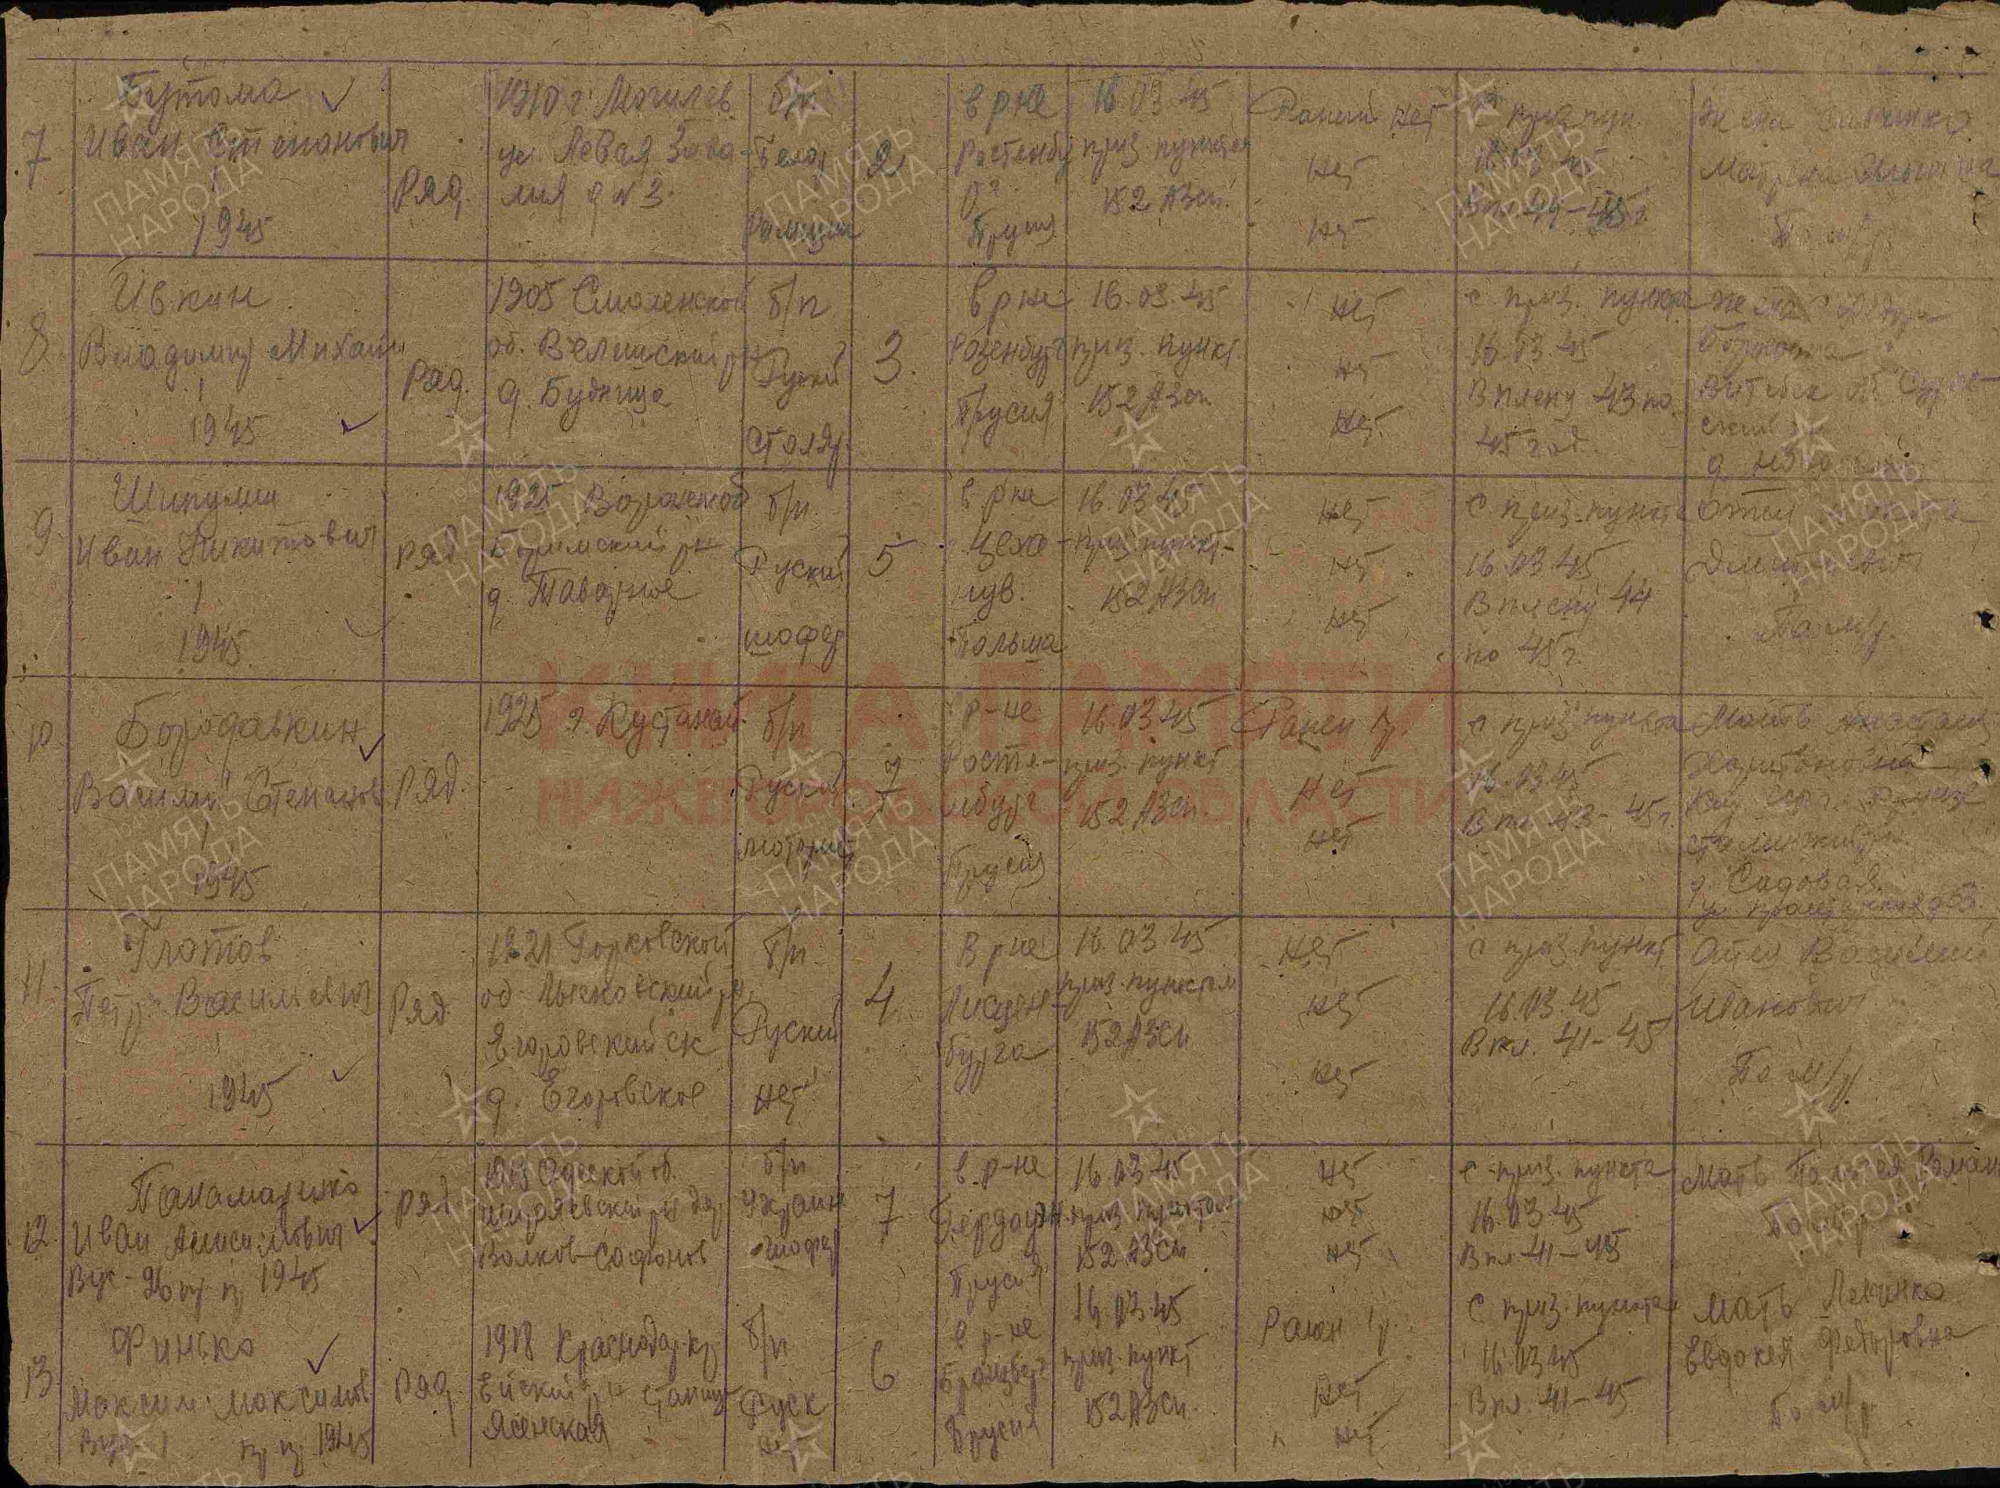 7
Бутома
Иван Степанович
1
1945
Ряд.
1910 г. Могилев
ул. Левая Зава-
лия д №3.
б/п
Белор
2
в р-не
Растенбу
рг
Прусия
16.03.45
приз. пунктом
152 АЗСП
Раний нет
Нет
Нет
с приз пун.
16.03.45
В пл. 44-45 г.
Жена
По м/р.
8
Ивкин
Владимир Михайл
1
1945
Ряд.
1905 Смоленской
об. Велижский р-н
д. Будница
б/п
Руский
Столяр.
3.
в р-не
Розенбург
Прусия
16.03.45
приз. пункт.
152 АЗСП
Нет
Нет
Нет.
с приз. пункта
16.03.45
В плену 43 по
45 год.
жена
Витебск об. Сураж-
ский
д.
9
Шипулин
Иван Никитович
1
1945
Ряд
1925 Воронежской
д. Таварное
б/п.
Руский
шофер
5
в р-не
Цеха-
нув.
Польша
16.03.45
приз. пункт-
152 АЗСП
Нет
Нет
Нет
с приз. пункта
16.03.45
В плену 44
по 45 г.
Отец Никита
Дмитриевич
По м/р.
10
Бородавкин
Василий Степанов
1
1945
Ряд.
1925 г. Кустанай.
б/п
Руский
моторист
7
в р-не
Расте-
нбург
Прусия
16.03.45
приз. пункт
152 АЗСП
Ранен 1 р.
Нет
нет
с приз. пункта
16.03.45
В пл. 43-45 г.
Мать Анастасия
Харитоновна
Сталинский р
д. Садовая
ул. Пролетарская д 53.
11.
Глотов
Петр Васильевич
1
1945
Ряд
1921 Горковской
об. Лысковский р.
Егоровский с/с
д. Егоровское
б/п
Руский
Нет
4
В р-не
Инстен-
бурга
16.03.45
приз. пунктом
152 АЗСП
Нет
Нет
Нет
с приз. пункт
16.03.45
В пл. 41-45
Отец Василий
Иванович
По м/р
12.
Панамаренко
Иван Анисимович
Вус-26 пр. п. 1945
Ряд
Одеской об.
Волков-Сафонов
б/п
Украин
шофер
7
в р-не
Гердауэн
Прусия
16.03.45
приз. пунктом
152 АЗСП
Нет
Нет
Нет
с приз. пункта
16.03.45
В пл 41-45
Мать Роман
По м/р
13.
Финько
Максим Максимов
Вус-1 пр. п. 1945
Ряд
1918 Краснодар кр
Ейский р-н станиц
Ясенская
б/п
Руск
Нет
6
в р-не
Прусия
16.03.45
приз. пункт
152 АЗСП
Ранен 1 р.
Нет
Нет
с приз. пунктом
16.03.45
В пл. 41-45
Мать
Евдокея Федоровна
По м/р
КНИГА ПАМЯТИ
НИЖЕГОРОДСКОЙ ОБЛАСТИ
ПАМЯТЬ
НАРОДА